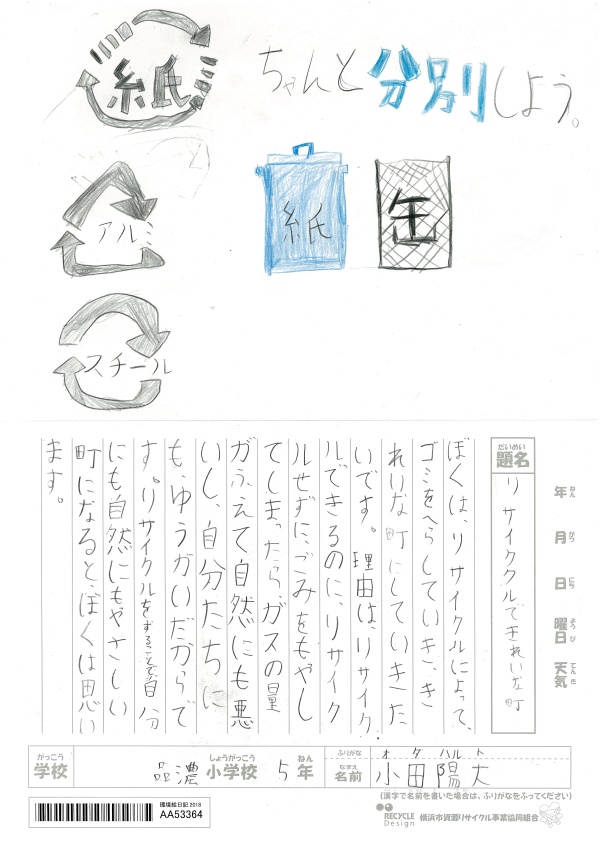 紙
ちゃんと分別しよう。
アルミ
紙
缶
スチール
年 ねん
月 がつ
日 にち
曜日 ようび
天気 てんき
だいめい
題名
リサイククルできれいな町
ぼくは、リサイクルによって、
ゴミをへらしていき、き
れいな町にしていきた
いです。理由は、リサイク
ルできるのに、リサイク
ルせずに、ごみをもやし
てしまったら、ガスの量
がふえて自然にも悪
いし、自分たちに
も、ゆうがいだからで
す。リサイクルをすることで自分
にも自然にもやさしい
町になると、ぼくは思い
ます。
がっこう しょうがっこう ねん ふりがな オダ ハルト
学校 品濃 小学校 5 年 なまえ 名前 小田陽大
(漢字で名前を書いた場合は、ふりがなをふってください)
環境絵日記 2018
AA53364
RECYCLE Design 横浜市資源リサイクル事業協同組合